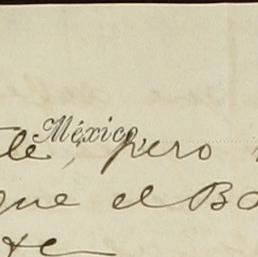 México,
te, pero
que el Ba
te